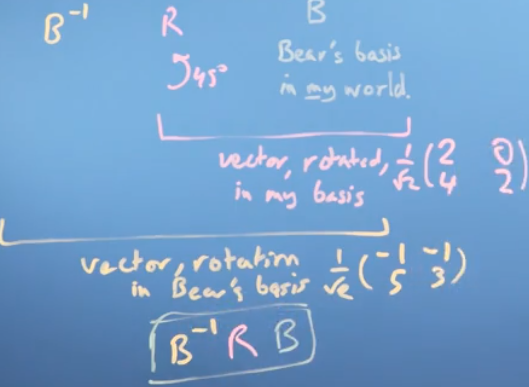 B⁻¹ R B
↺45° Bear's basis
in my world.
vector, rotated, 1/√2 (2 0
in my basis 4 2)
vector, rotation 1/√2 (-1 -1
in Bear's basis 5 3)
B⁻¹ R B